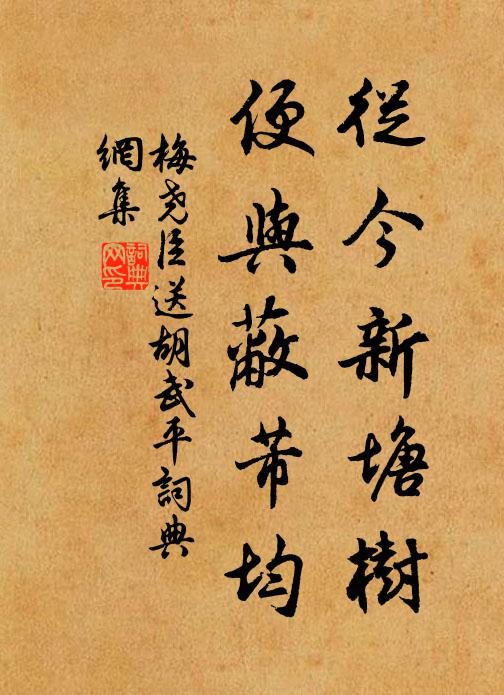 從今新塘樹
便與蔽芾均
梅尧臣送胡武平詞典
網集
詞典
网印